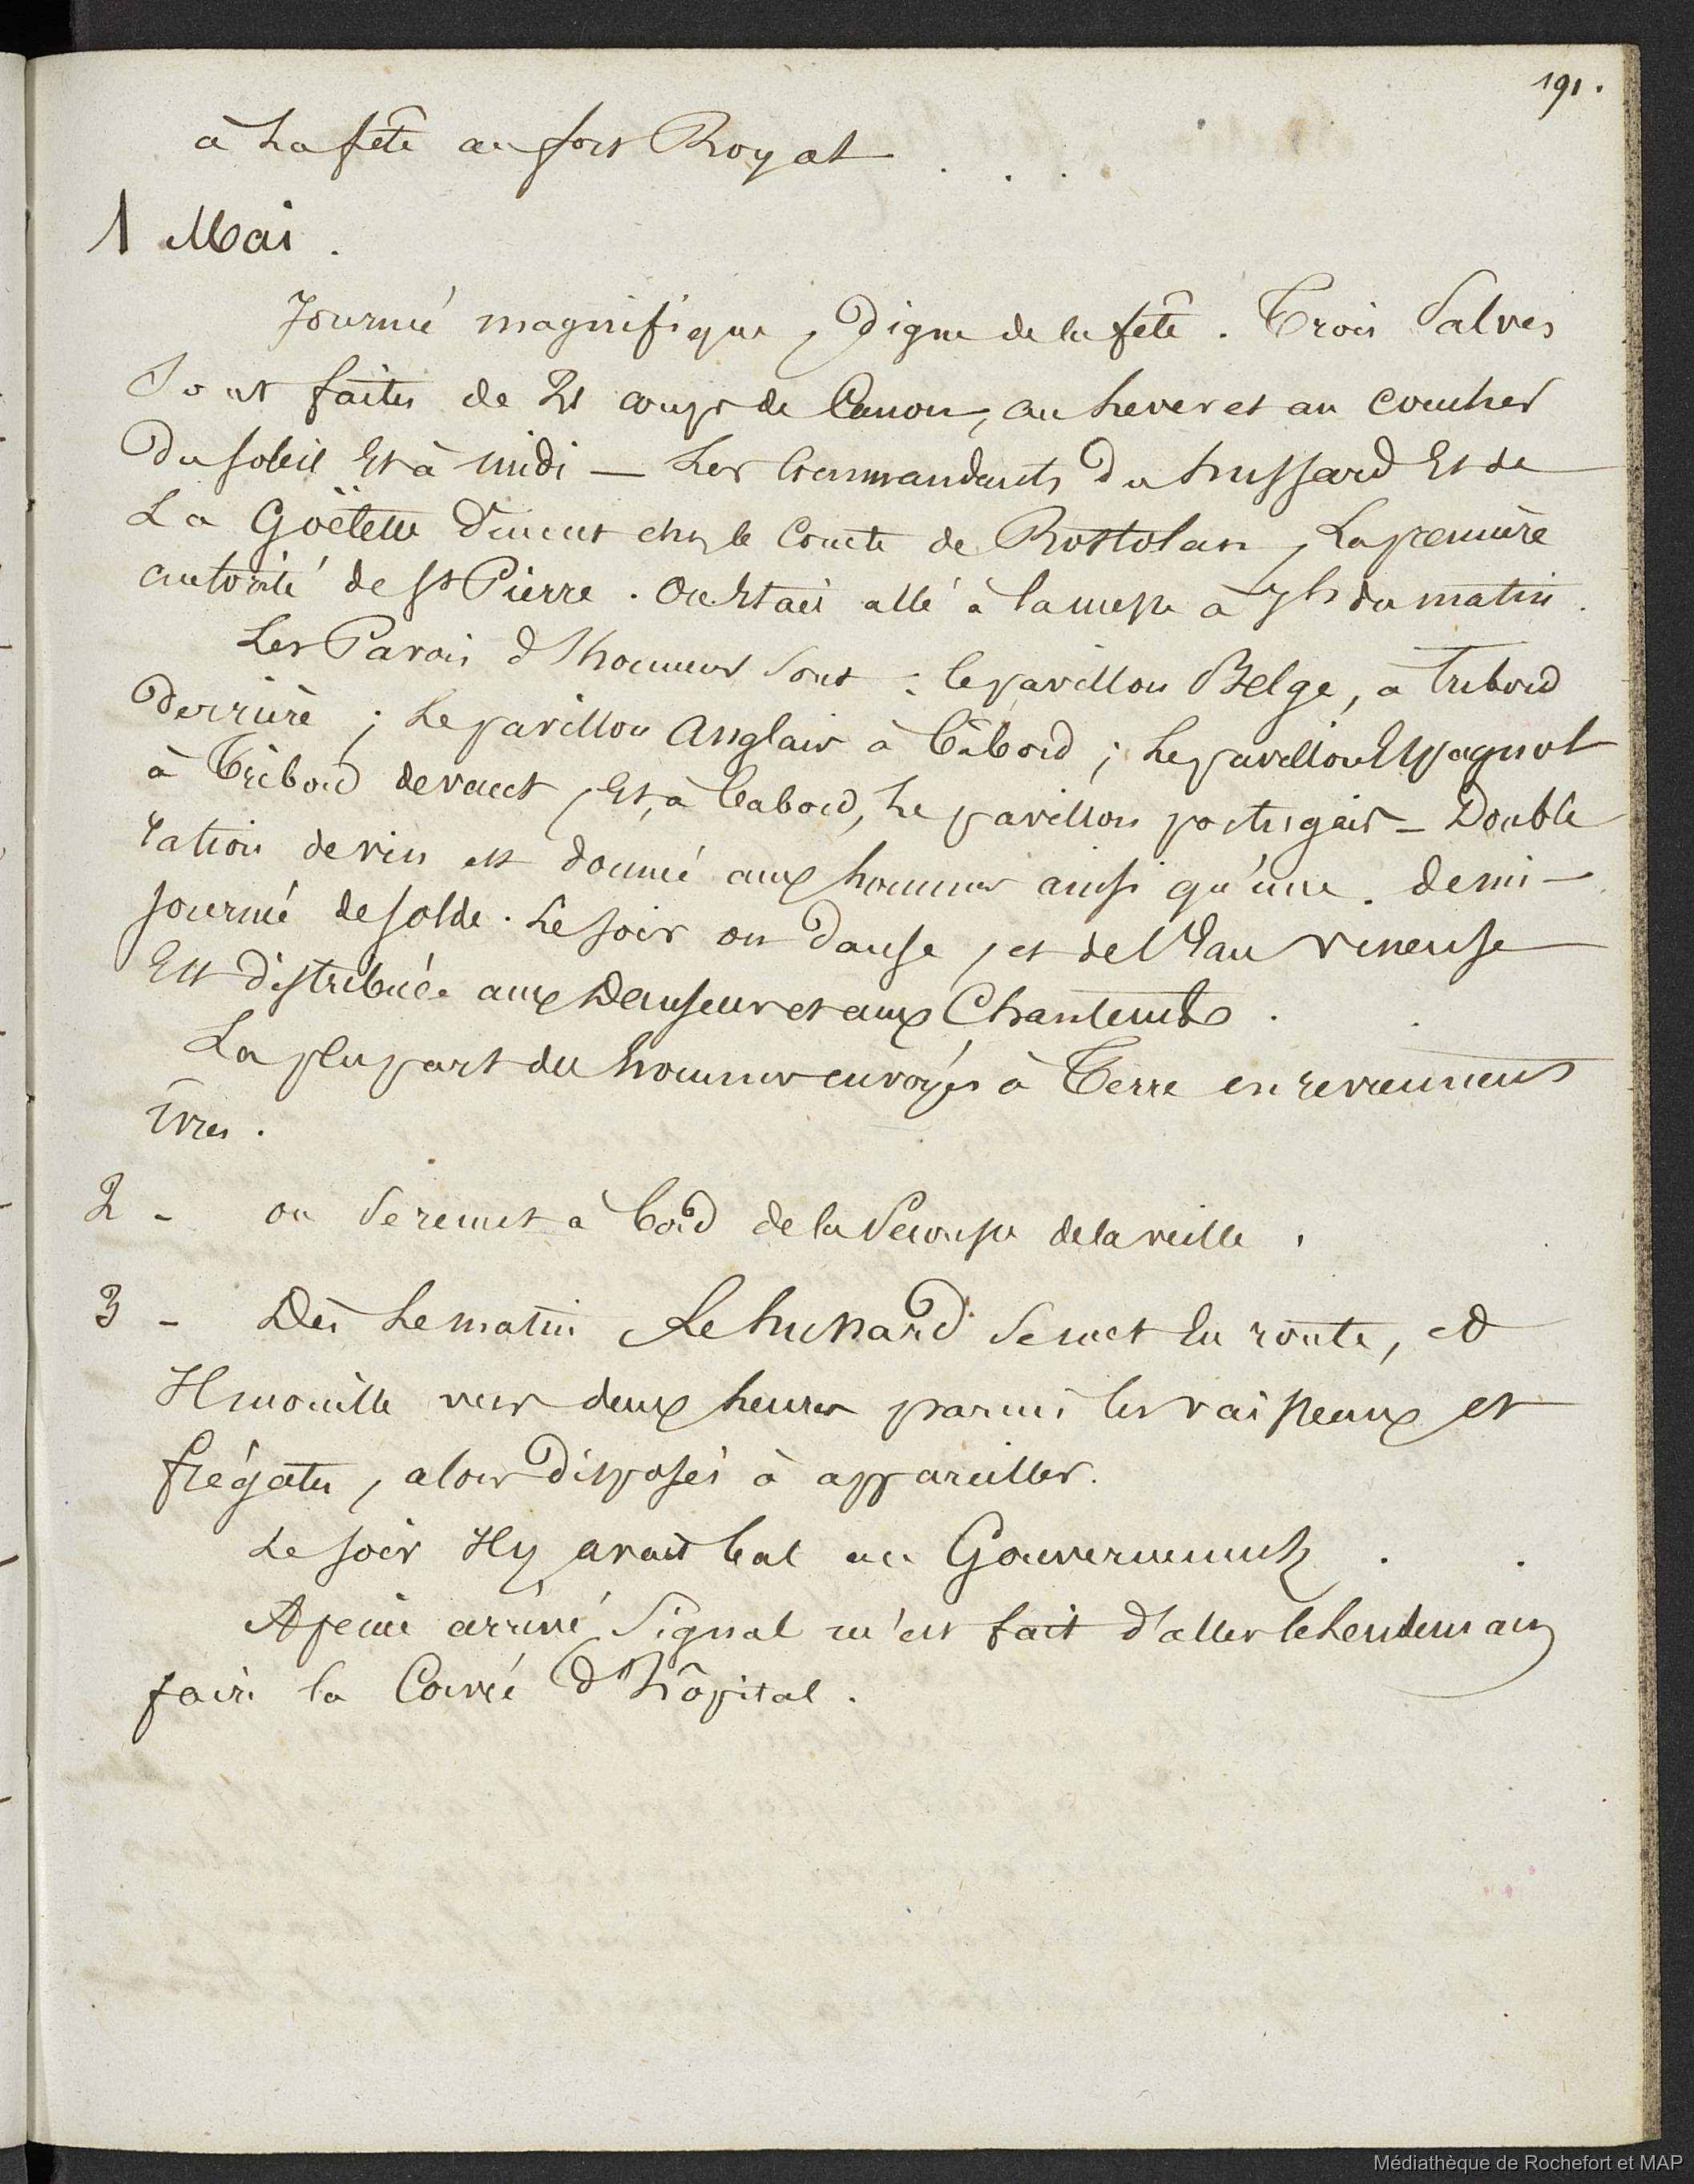 191.
à La fête au fort Royal . . .
1 Mai .
Journée magnifique, Digne de la fête . Trois Salves
Sont faites de 21 coups de Canon, au Lever et au coucher
Du soleil Et à midi — Les Commandants Du hussard Et de
La Goëlette Dinent chez le Comte de Rostolan, La première
autorité de St Pierre . On Etait allé à la messe à 7h du matin .
Les Pavois d'Honneur Sont : le pavillon Belge, à Tribord
Derrière ; Le pavillon Anglais à Bâbord ; Le pavillon Espagnol
à Tribord devant, Et, à Babord, Le pavillon portugais – Double
ration de vin est donnée aux hommes ainsi qu'une demi-
journée de solde . Le soir on Danse, et de l'Eau vineuse
Est distribuée aux Danseurs et aux Chanteurs .
La plupart des hommes envoyés à Terre en reviennent
Ivres .
2 - on Se remet à bord de la Secousse de la veille .
3 - Dès Le matin Le hussard Se met En route, et
Il mouille vers deux heures parmi les vaisseaux et
frégates, alors Disposés à appareiller.
Le soir Il y avait bal au Gouvernement .
A peine arrivé, Signal m'est fait d'aller le Lendemain
faire la Corvée d'hôpital .
Médiathèque de Rochefort et MAP